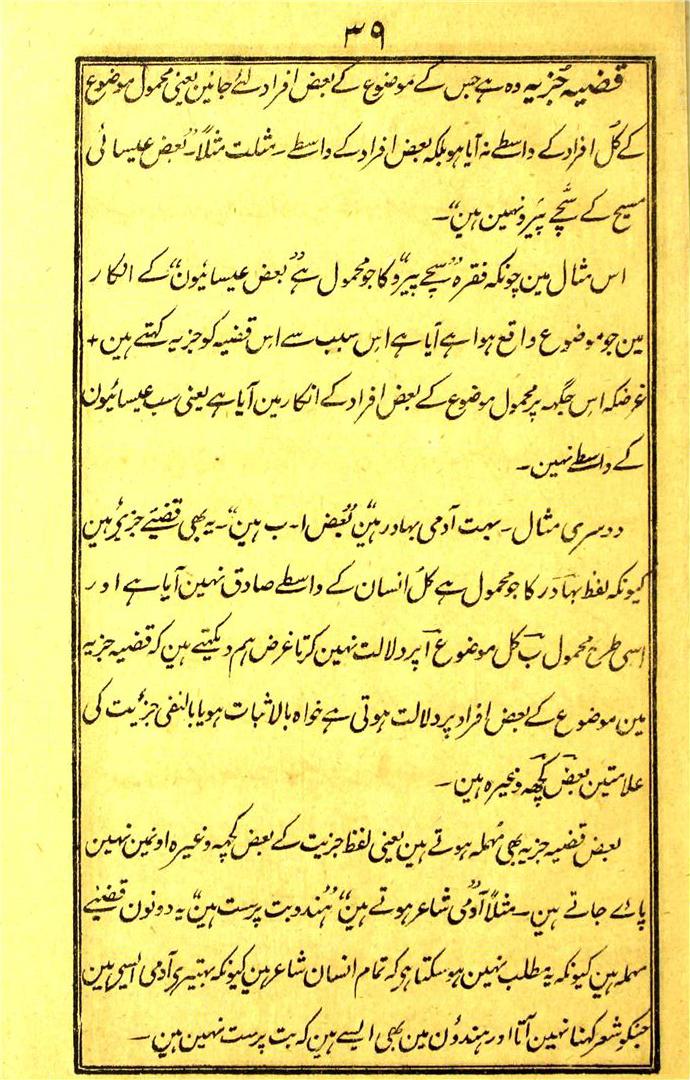 ۳۹
قضیہ جُزیہ وہ ہے جس کے موضوع کے بعض افراد لئے جائین یعنی محمول موضوع
کے کل افراد کے واسطے نہ آیا ہو بلکہ بعض افراد کے واسطے ۔ مثلاً ۔ "بعض عیسائی
مسیح کے سچّے پَیرو نہین ہین" ۔
اس مثال مین چونکہ فقرہ "سچے پیرو" کا جو محمول ہے "بعض عیسائیون" کے انکار
مین جو موضوع واقع ہوا ہے آیا ہے اس سبب سے اس قضیہ کو جزیہ کہتے ہین +
غرضکہ اس جگہہ پر محمول موضوع کے بعض افراد کے انکار مین آیا ہے یعنی سب عیسائیون
کے واسطے نہین ۔
دوسری مثال ۔ بہت آدمی بہادر ہین" "بعض ا ۔ ب ہین" ۔ یہ بھی قضیئے جزیئ ہین
کیونکہ لفظ بہادر کا جو محمول ہے کل انسان کے واسطے صادق نہین آیا ہے اور
اسی طرح محمول ب کل موضوع ا پر دلالت نہین کرتا غرض ہم دیکھتے ہین کہ قضیہ جزیہ
مین موضوع کے بعض افراد پر دلالت ہوتی ہے خواہ بالاثبات ہو یا بالنفی جزئیت کی
علامتین بعض کچھہ وغیرہ ہین ۔
بعض قضیہ جزیہ بھی مُہملہ ہوتے ہین یعنی لفظ جزیت کے بعض کچھہ وغیرہ اونمین نہین
پائے جاتے ہین ۔ مثلاً "آدمی شاعر ہوتے ہین" "ہندو بت پرست ہین" یہ دونون قضیئے
مہملہ ہین کیونکہ یہ مطلب نہین ہو سکتا ہی کہ تمام انسان شاعر ہین کیونکہ بہتیرے آدمی ایسی ہین
جنکو شعر کہنا نہین آتا اور ہندوُن مین بھی ایسے ہین کہ بت پرست نہین ہین ۔